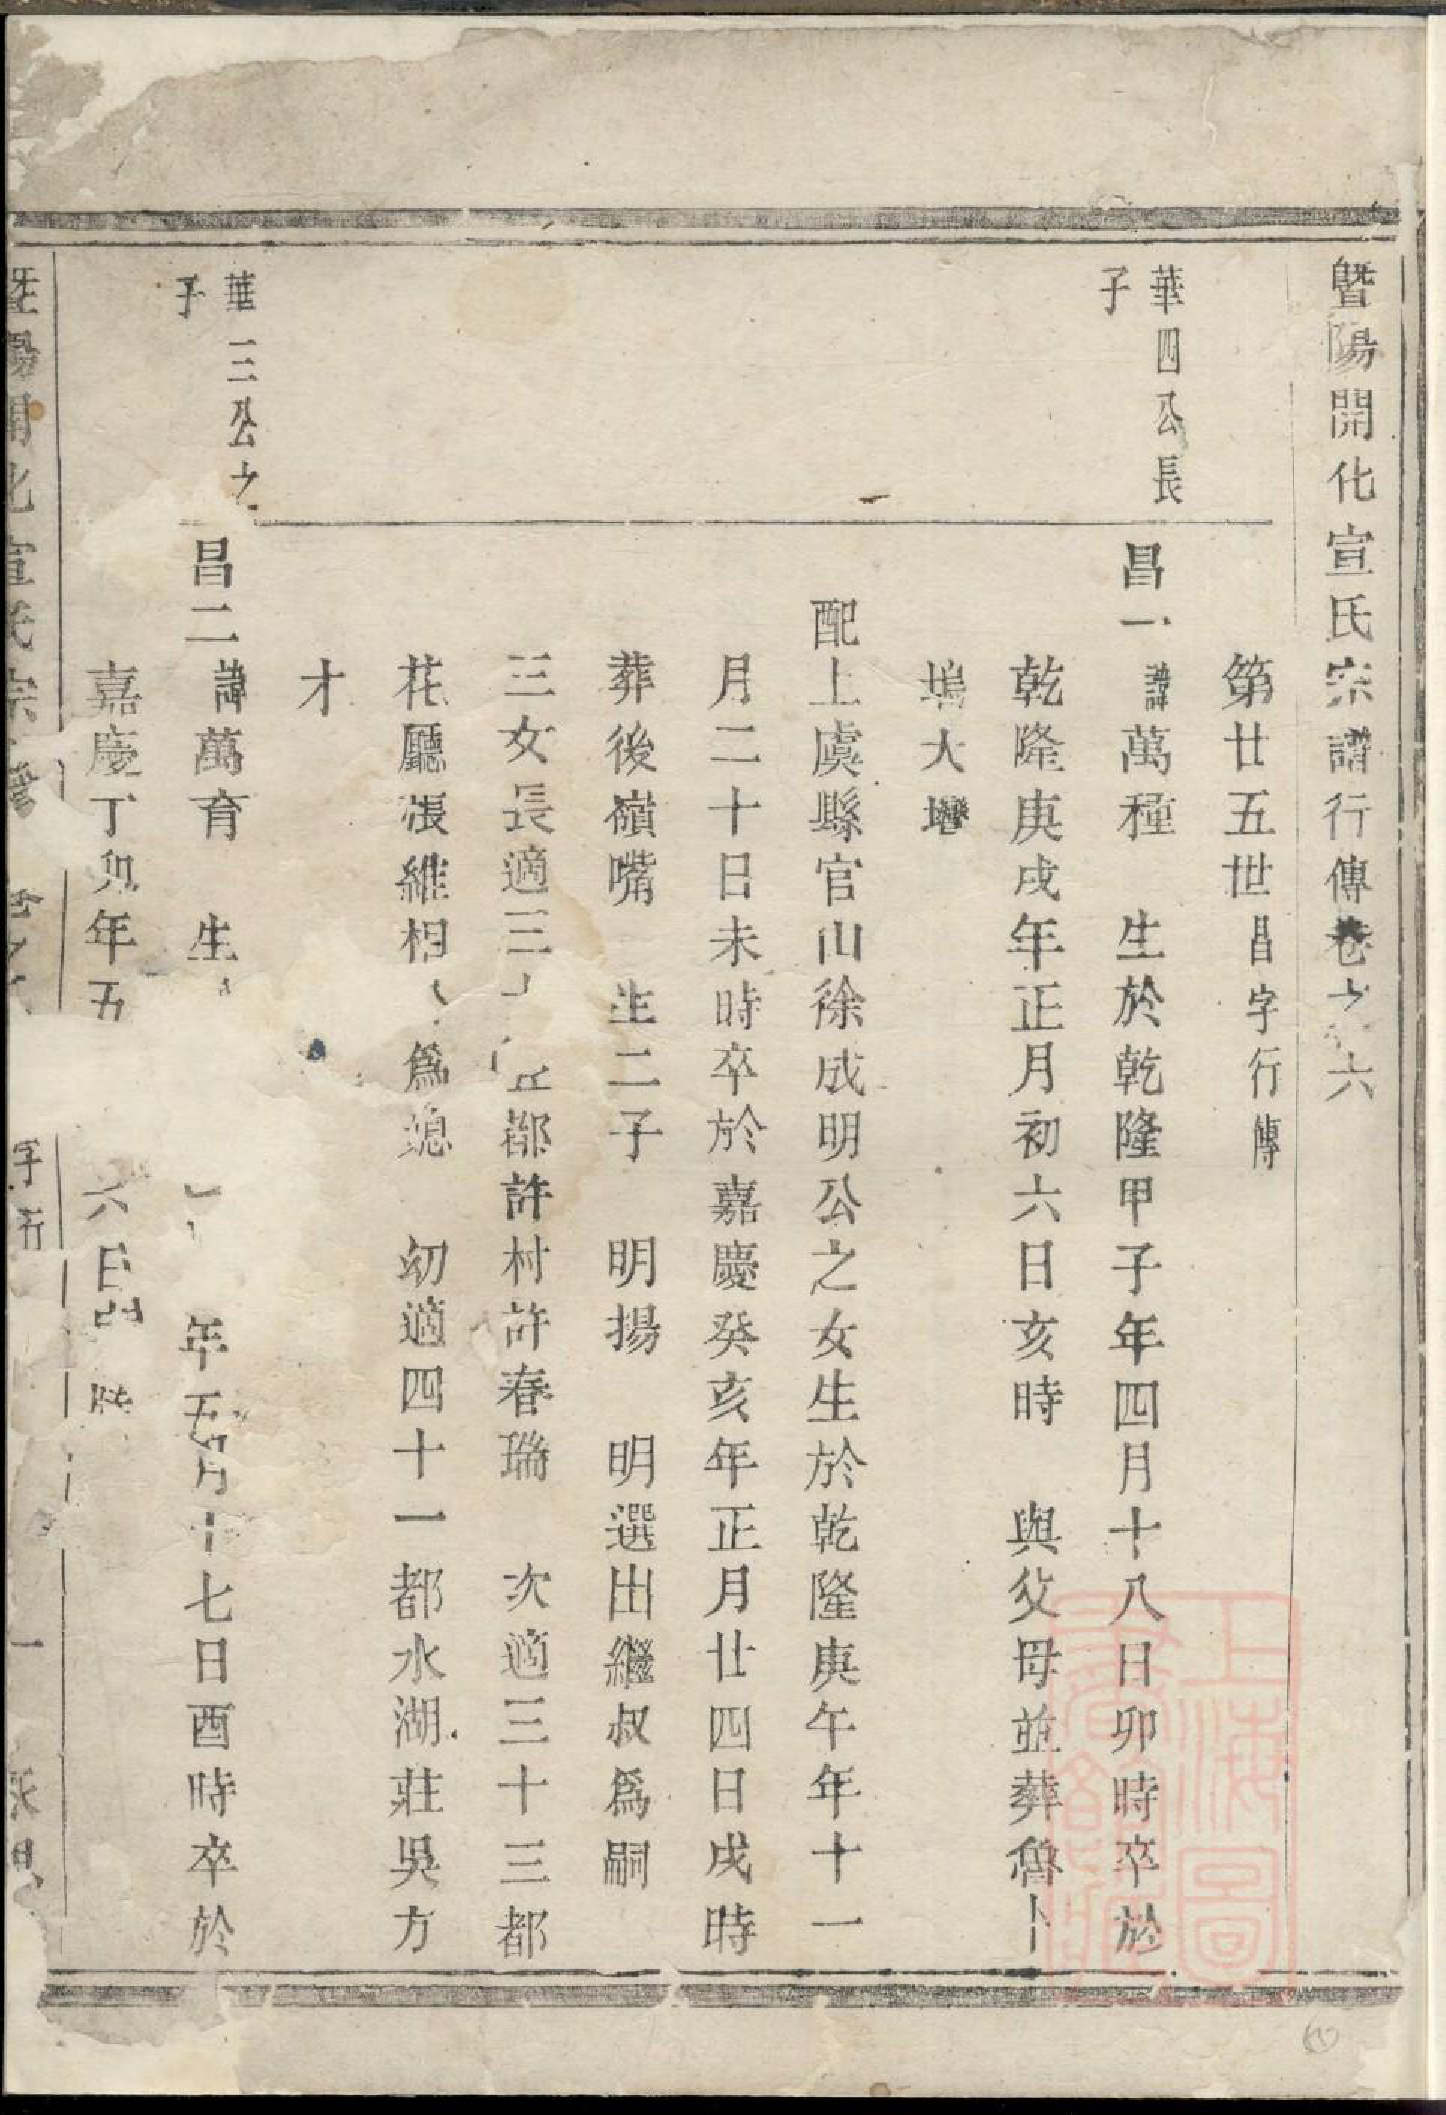 暨陽開化宣氏宗譜行傳卷之六
第廿五世昌字行傳
華四公長
子
昌一諱萬種 生於乾隆甲子年四月十八日卯時卒於
乾隆庚戌年正月初六日亥時 與父母並葬魯卜
塢大灣
配上虞縣官山徐成明公之女生於乾隆庚午年十一
月二十日未時卒於嘉慶癸亥年正月廿四日戌時
葬後嶺嘴 生二子 明揚 明選出繼叔爲嗣
三女長適三 五都許村許春瑞 次適三十三都
花廳張維相 爲媳 幼適四十一都水湖莊吳方
才
華三公之
子
昌二諱萬育 生 年五月十七日酉時卒於
嘉慶丁卯年五 六日 時
暨陽開化宣氏宗譜
字行
一